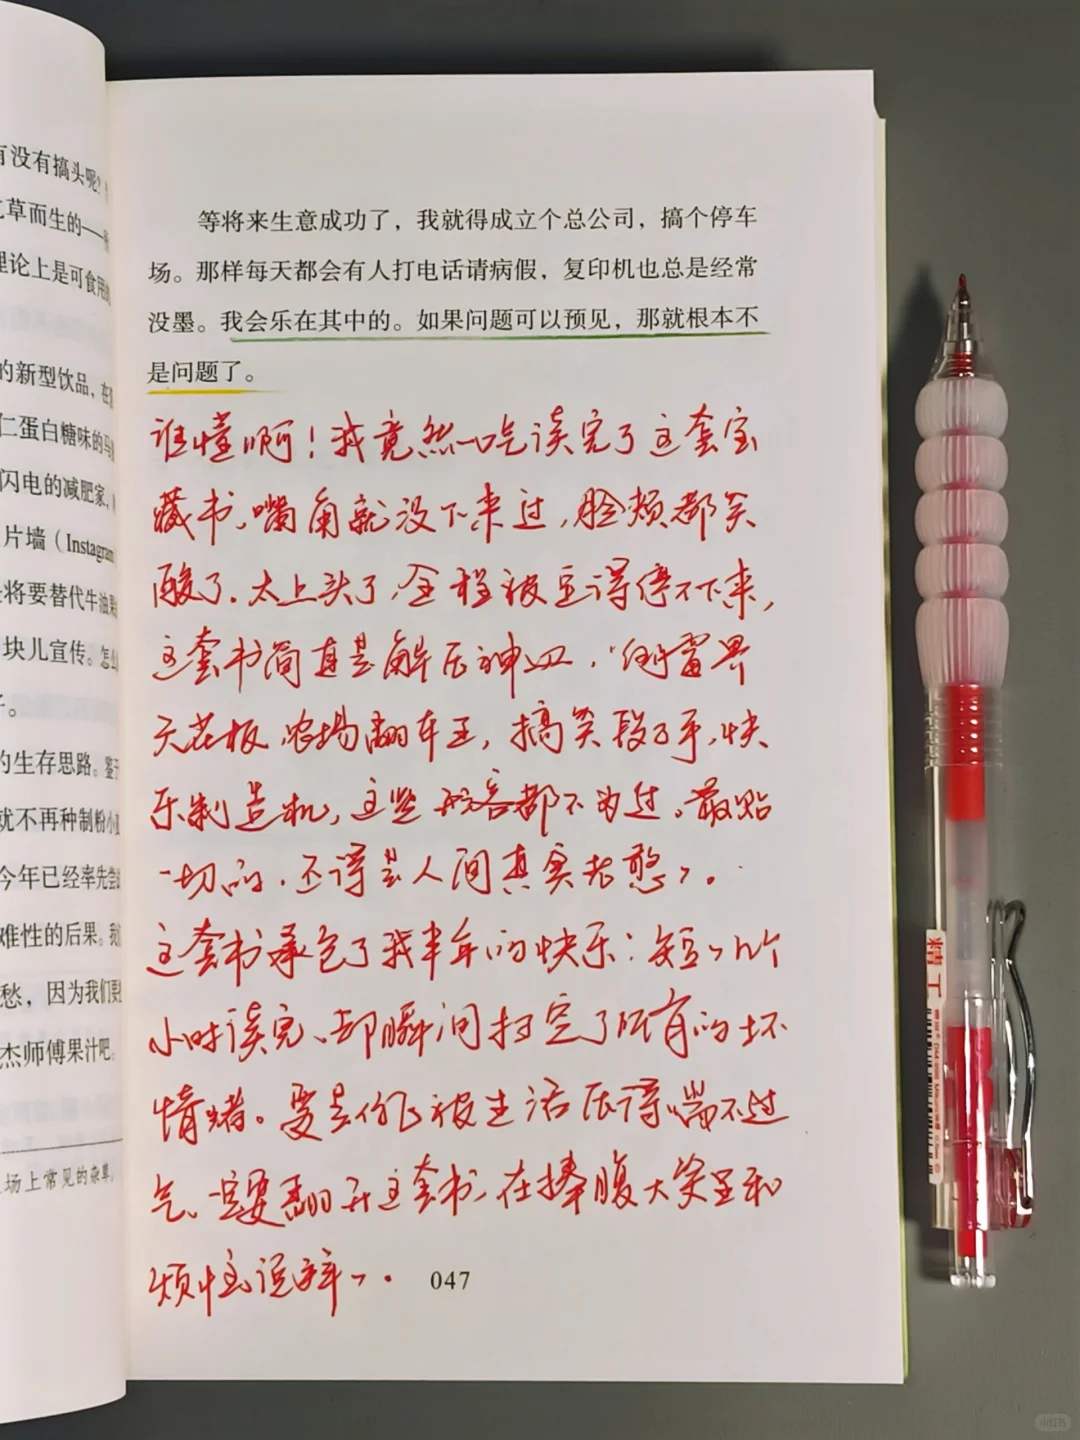 有没有搞头呢？
草而生的——
理论上是可食用
的新型饮品，在
仁蛋白糖味的马
闪电的减肥家，
片墙（Instagram
将要替代牛油果
块儿宣传。怎么
子。
的生存思路。鉴于
就不再种制粉小
今年已经率先尝
难性的后果。我
愁，因为我们要
杰师傅果汁吧。
场上常见的杂草。
等将来生意成功了，我就得成立个总公司，搞个停车
场。那样每天都会有人打电话请病假，复印机也总是经常
没墨。我会乐在其中的。如果问题可以预见，那就根本不
是问题了。
谁懂啊！我竟然一口气读完了这套宝
藏书，嘴角就没下来过，脸颊都笑
酸了。太上头了，全程被逗得停不下来，
这套书简直是解压神器，"倒霉界
天花板，农场翻车王，搞笑段子手，快
乐制造机，这些形容都不为过。最贴
切的，还得是人间真实老憨憨。
这套书承包了我半年的快乐：短短几个
小时读完、却瞬间打定了所有的坏
情绪。要是你被生活压得喘不过
气、一定要翻开这套书，在捧腹大笑里和
烦恼说拜拜。
047
精工
小红书